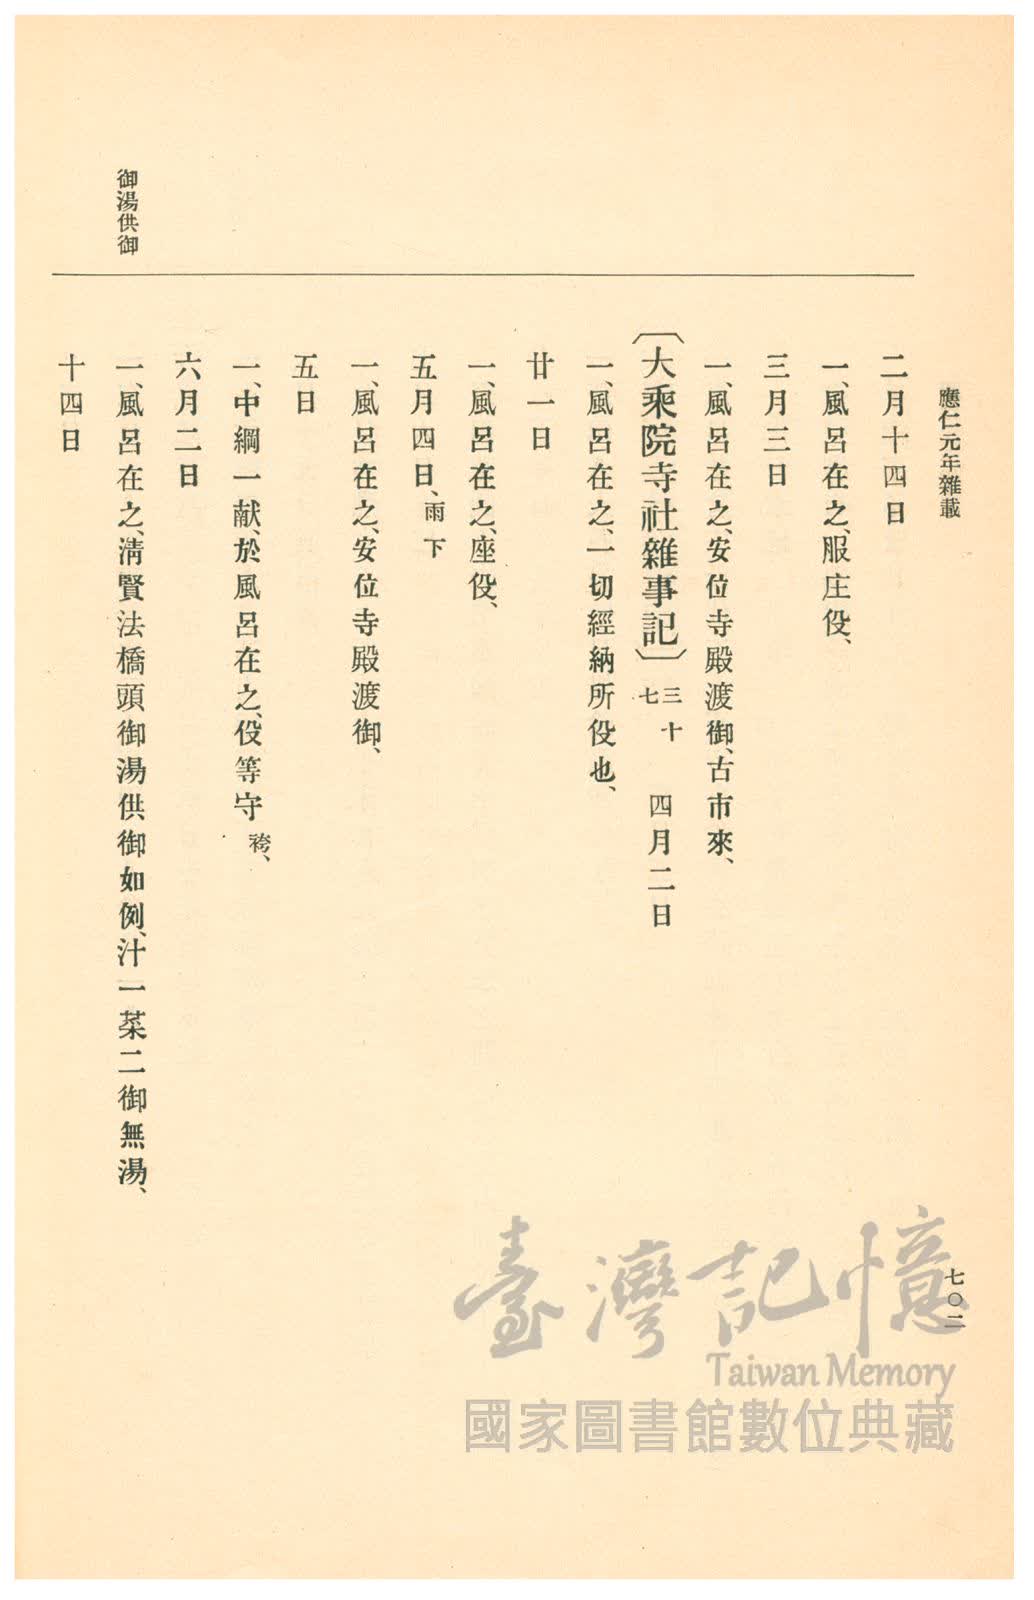 應仁元年雜載
七〇二
二月十四日
一、風呂在之、服庄役、
三月三日
一、風呂在之、安位寺殿渡御、古市來、
〔大乘院寺社雜事記〕三十七 四月二日
一、風呂在之、一切經納所役也、
廿一日
一、風呂在之、座役、
五月四日、雨下
一、風呂在之、安位寺殿渡御、
五日
一、中綱一献、於風呂在之、役等守袴、
六月二日
御湯供御
一、風呂在之、淸賢法橋頭、御湯供御如例、汁一菜二御無湯、
十四日
臺灣記憶
Taiwan Memory
國家圖書館數位典藏